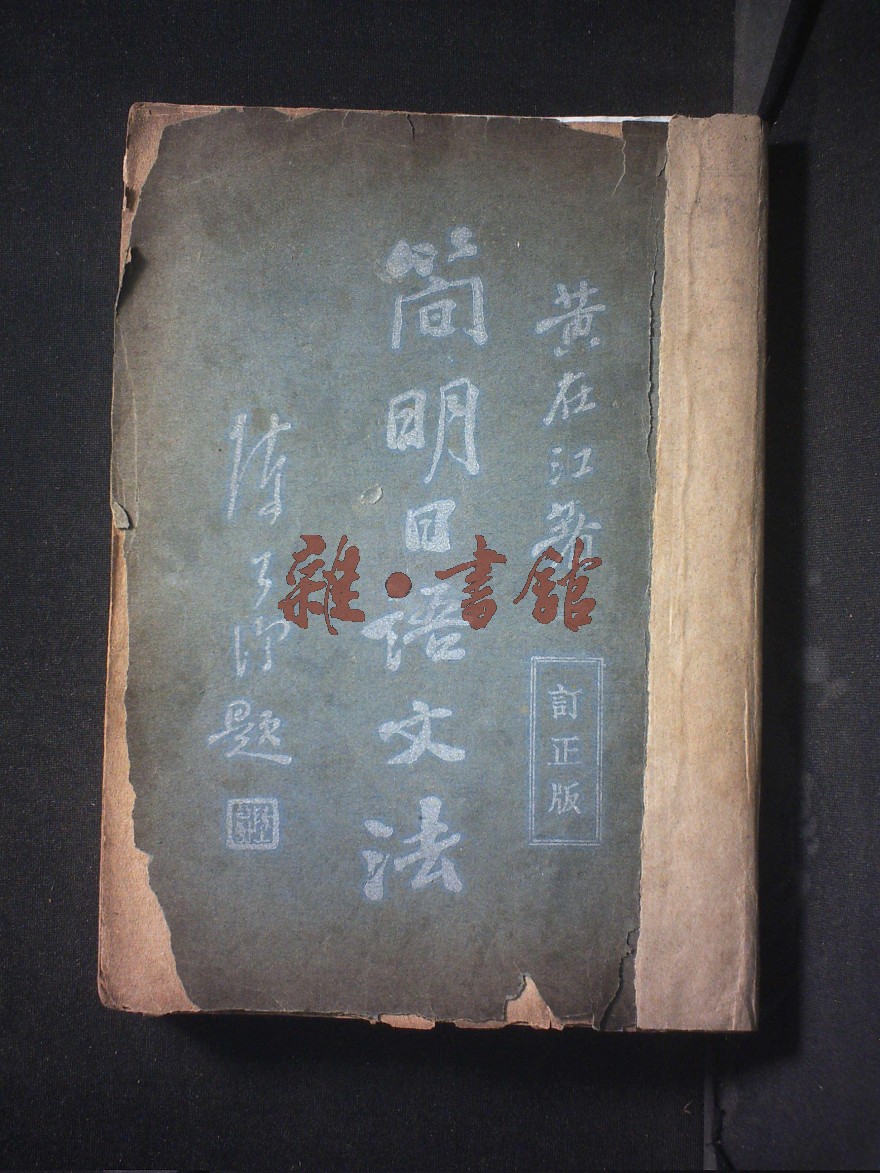 黃在江著
訂正版
簡明日語文法
陳
題
雜·書館